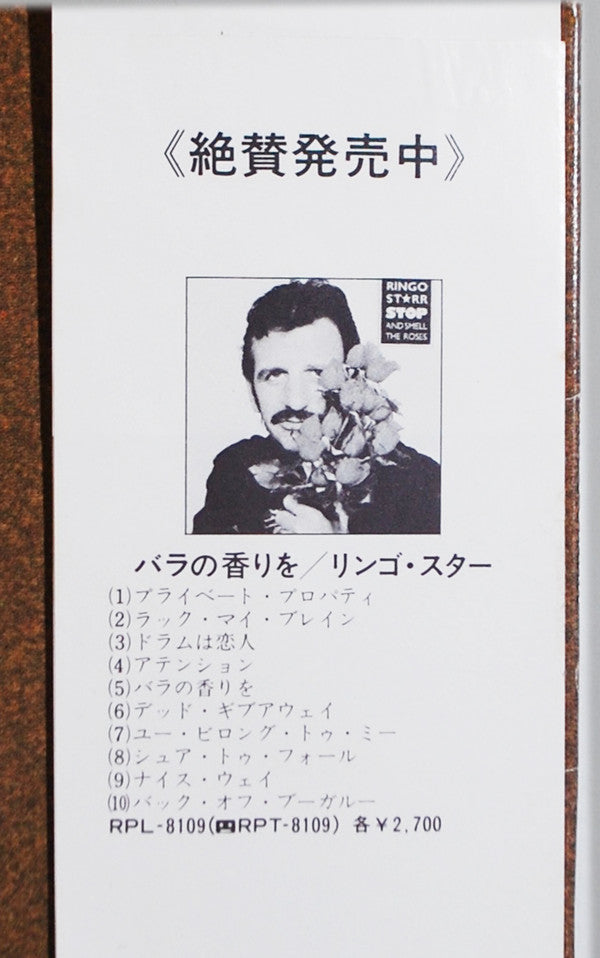 《絶賛発売中》
RINGO
ST★RR
STOP
AND SMELL
THE ROSES
バラの香りを／リンゴ・スター
(1)プライベート・プロパティ
(2)ラック・マイ・ブレイン
(3)ドラムは恋人
(4)アテンション
(5)バラの香りを
(6)デッド・ギブアウェイ
(7)ユー・ビロング・トゥ・ミー
(8)シュア・トゥ・フォール
(9)ナイス・ウェイ
(10)バック・オフ・ブーガルー
RPL-8109(RPT-8109) 各￥2,700